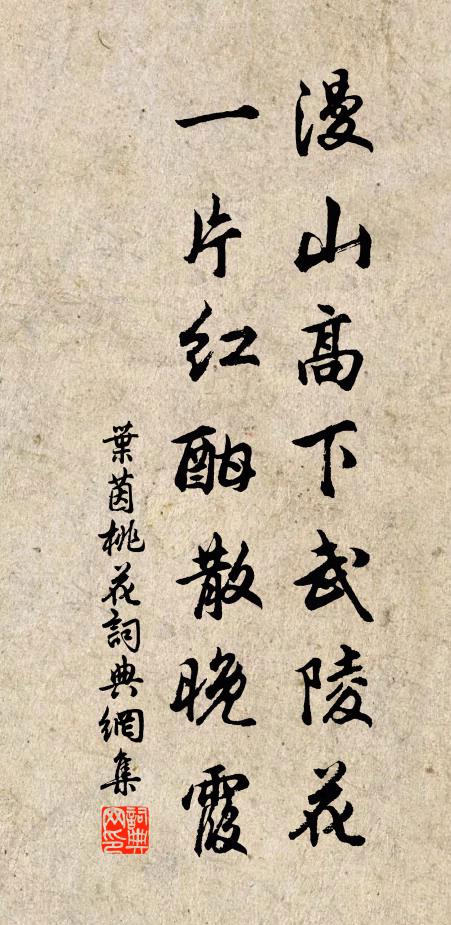 漫山高下武陵花
一片紅酣散晚霞
葉茵桃花詞典網集
詞典網印